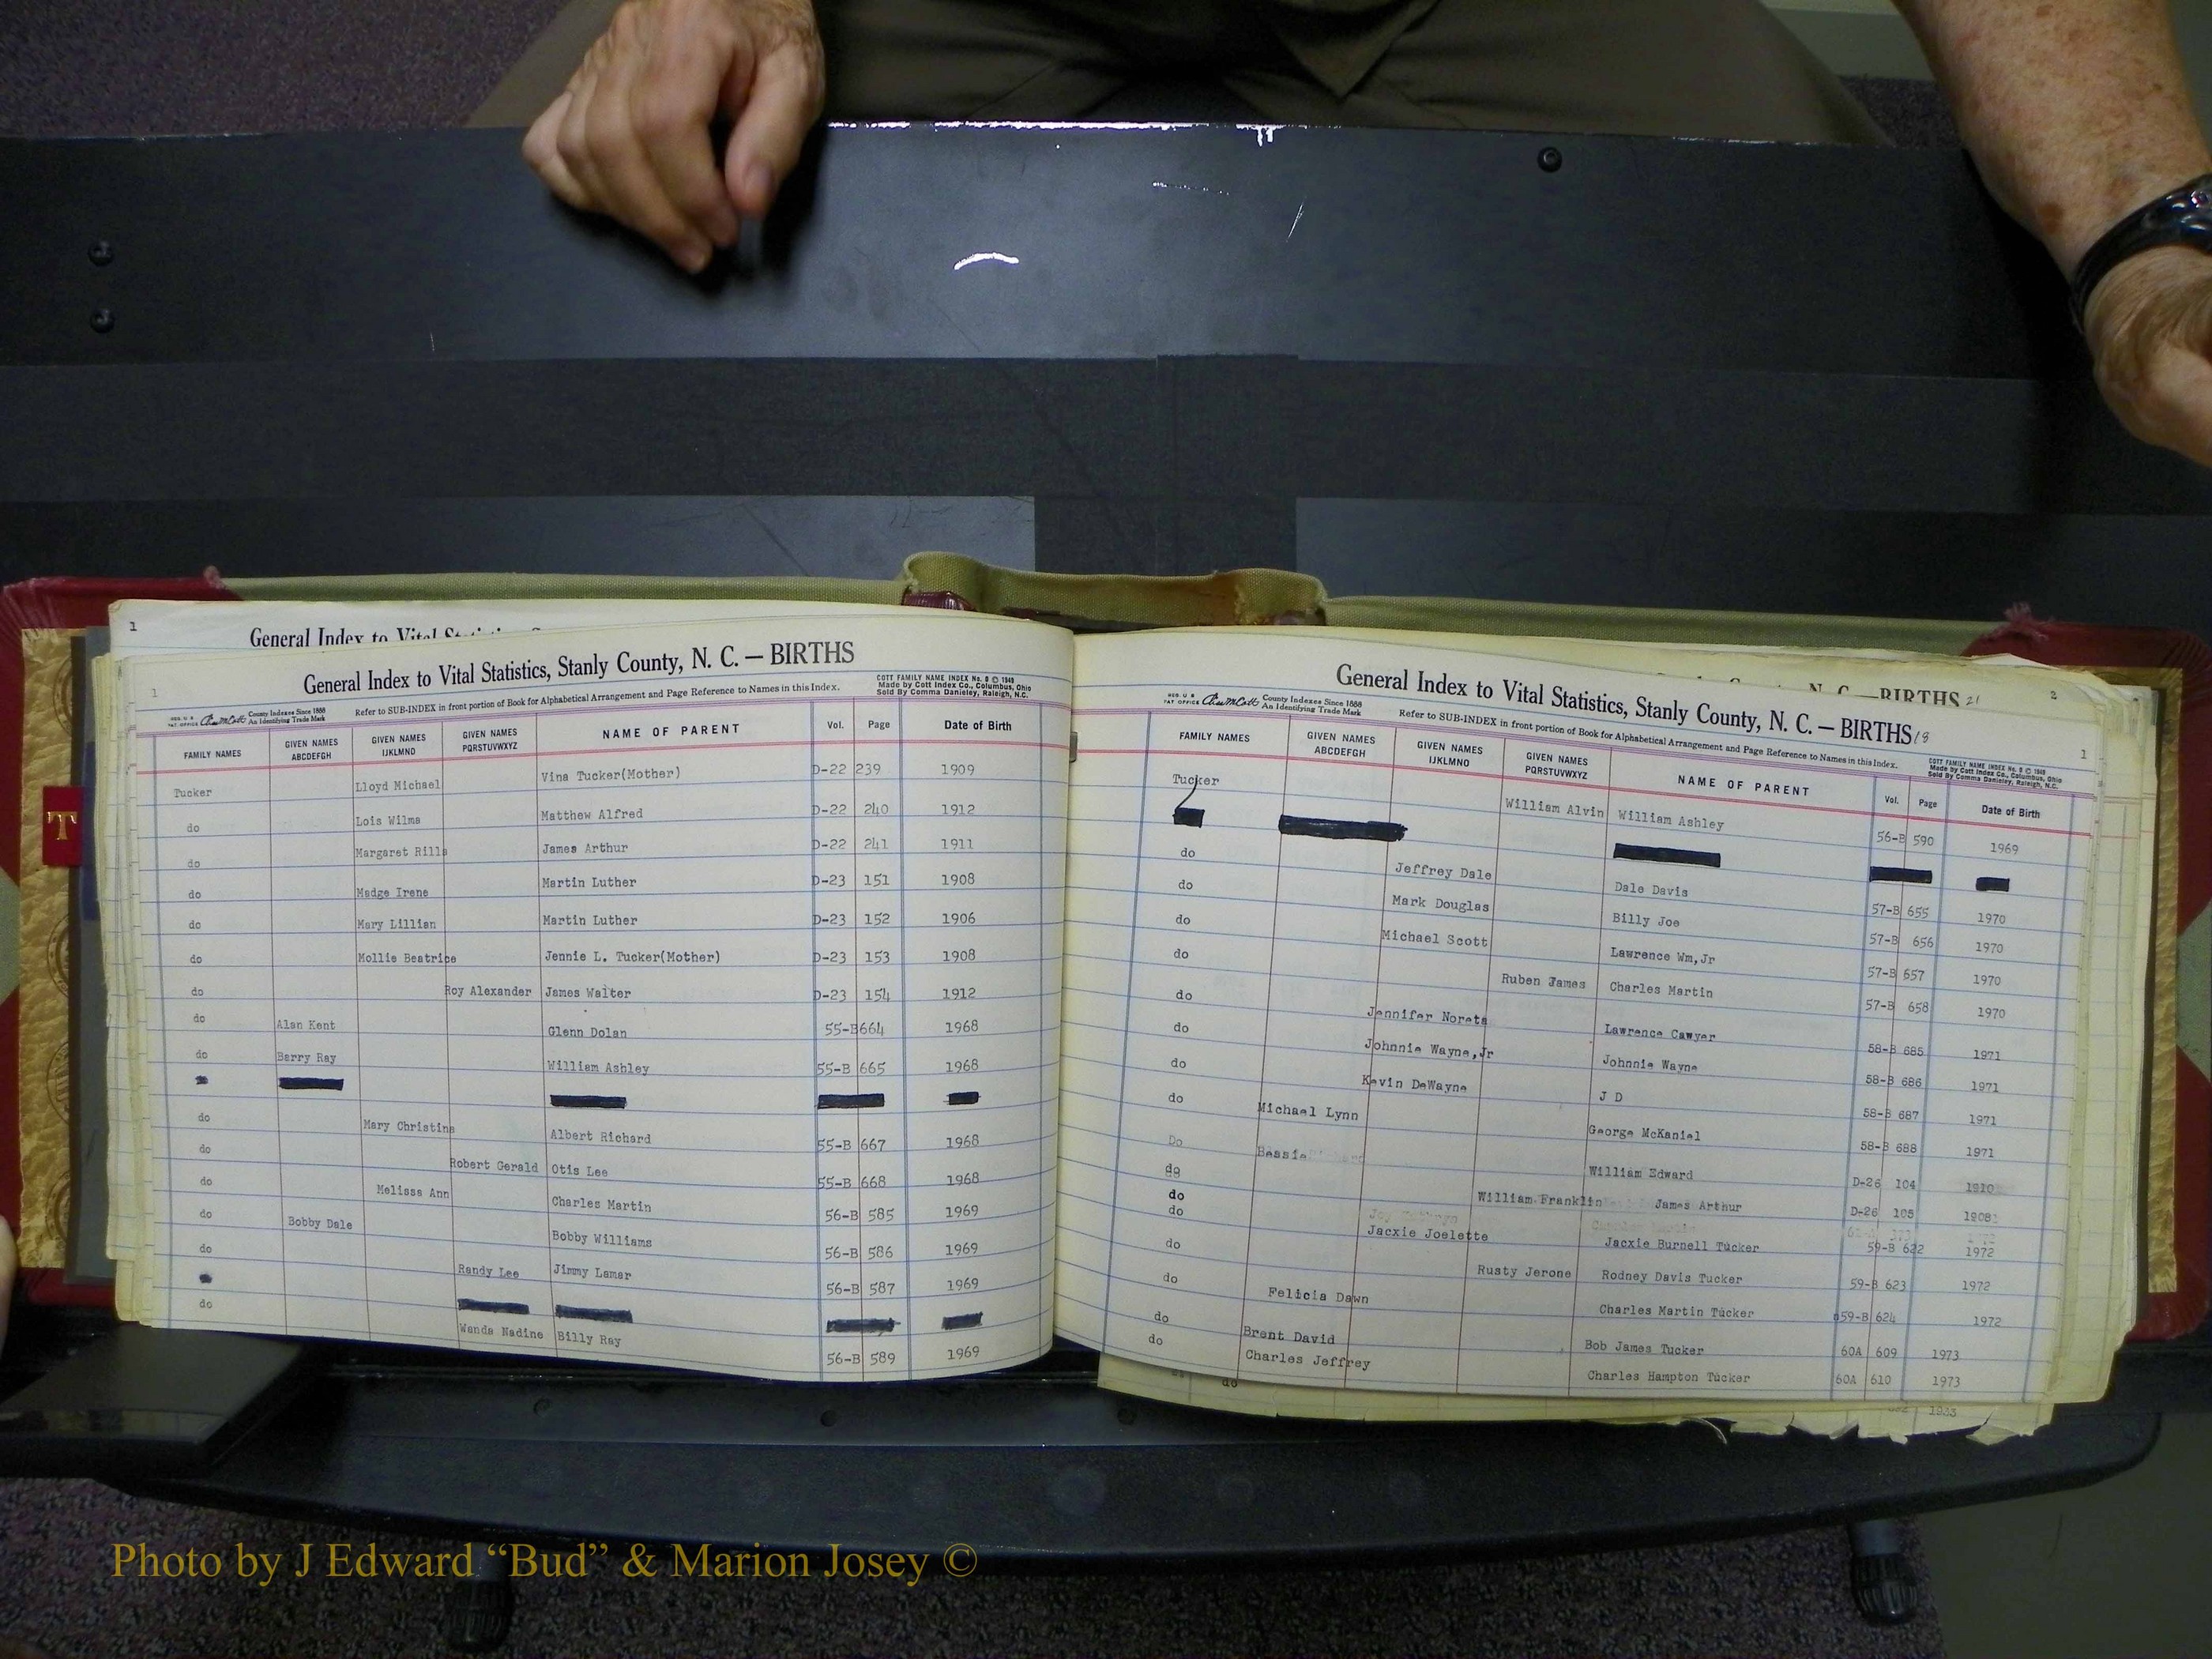 1
General Index to Vital Statistics
General Index to Vital Statistics, Stanly County, N. C. — BIRTHS
1
COTT FAMILY NAME INDEX No. 8 © 1949
Made by Cott Index Co., Columbus, Ohio
Sold By Comma Danieley, Raleigh, N.C.
REG. U. S. PAT. OFFICE County Indexes Since 1888 An Identifying Trade Mark
Refer to SUB-INDEX in front portion of Book for Alphabetical Arrangement and Page Reference to Names in this Index.
FAMILY NAMES GIVEN NAMES ABCDEFGH GIVEN NAMES IJKLMNO GIVEN NAMES PQRSTUVWXYZ NAME OF PARENT Vol. Page Date of Birth
T
Tucker Lloyd Michael Vina Tucker(Mother) D-22 239 1909
do Lois Wilma Matthew Alfred D-22 240 1912
do Margaret Rills James Arthur D-22 241 1911
do Madge Irene Martin Luther D-23 151 1908
do Mary Lillian Martin Luther D-23 152 1906
do Mollie Beatrice Jennie L. Tucker(Mother) D-23 153 1908
do Roy Alexander James Walter D-23 154 1912
do Alan Kent Glenn Dolan 55-B 664 1968
do Barry Ray William Ashley 55-B 665 1968
do Mary Christina Albert Richard 55-B 667 1968
do Robert Gerald Otis Lee 55-B 668 1968
do Melissa Ann Charles Martin 56-B 585 1969
do Bobby Dale Bobby Williams 56-B 586 1969
do Randy Lee Jimmy Lamar 56-B 587 1969
do Wanda Nadine Billy Ray 56-B 589 1969
N. C. — BIRTHS 21
2
General Index to Vital Statistics, Stanly County, N. C. — BIRTHS 18
1
REG. U. S. PAT. OFFICE County Indexes Since 1888 An Identifying Trade Mark
Refer to SUB-INDEX in front portion of Book for Alphabetical Arrangement and Page Reference to Names in this Index.
COTT FAMILY NAME INDEX No. 8 © 1949
Made by Cott Index Co., Columbus, Ohio
Sold By Comma Danieley, Raleigh, N.C.
FAMILY NAMES GIVEN NAMES ABCDEFGH GIVEN NAMES IJKLMNO GIVEN NAMES PQRSTUVWXYZ NAME OF PARENT Vol. Page Date of Birth
Tucker William Alvin William Ashley 56-B 590 1969
do Jeffrey Dale Dale Davis 57-B 655 1970
do Mark Douglas Billy Joe 57-B 656 1970
do Michael Scott Lawrence Wm,Jr 57-B 657 1970
do Ruben James Charles Martin 57-B 658 1970
do Jennifer Noreta Lawrence Cawyer 58-B 685 1971
do Johnnie Wayne,Jr Johnnie Wayne 58-B 686 1971
do Kevin DeWayne J D 58-B 687 1971
do Michael Lynn George McKaniel 58-B 688 1971
Do Bessie William Edward D-26 104 1910
do William Franklin James Arthur D-26 105 1908
do
do Jacxie Joelette Jacxie Burnell Tucker 59-B 622 1972
do Rusty Jerone Rodney Davis Tucker 59-B 623 1972
do Felicia Dawn Charles Martin Tucker 59-B 624 1972
do Brent David Bob James Tucker 60A 609 1973
do Charles Jeffrey Charles Hampton Tucker 60A 610 1973
do
Photo by J Edward “Bud” & Marion Josey ©